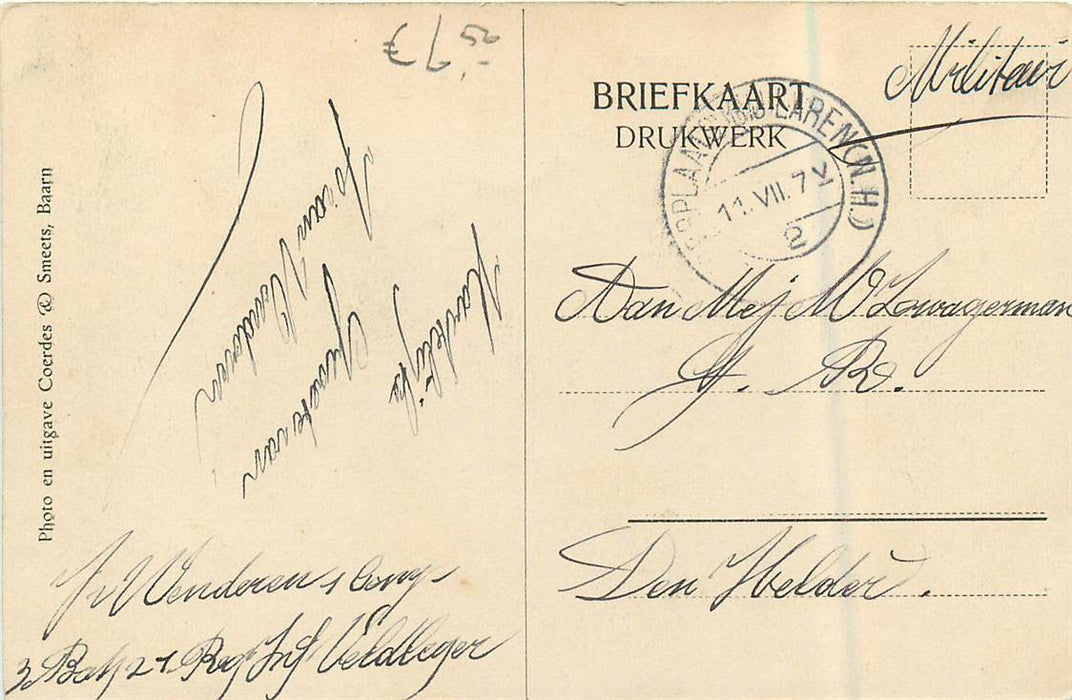 Photo en uitgave Coerdes & Smeets, Baarn
Hartelijke
Groete van
J van Wenderen
Jv Wenderen 1 Comp
3 Bat 21 Reg Inf Veldleger
BRIEFKAART
DRUKWERK
Militair
LAREN (N.H.)
11.VII.7V
2
Aan Mej M Zwagerman
P. R.
Den Helder.